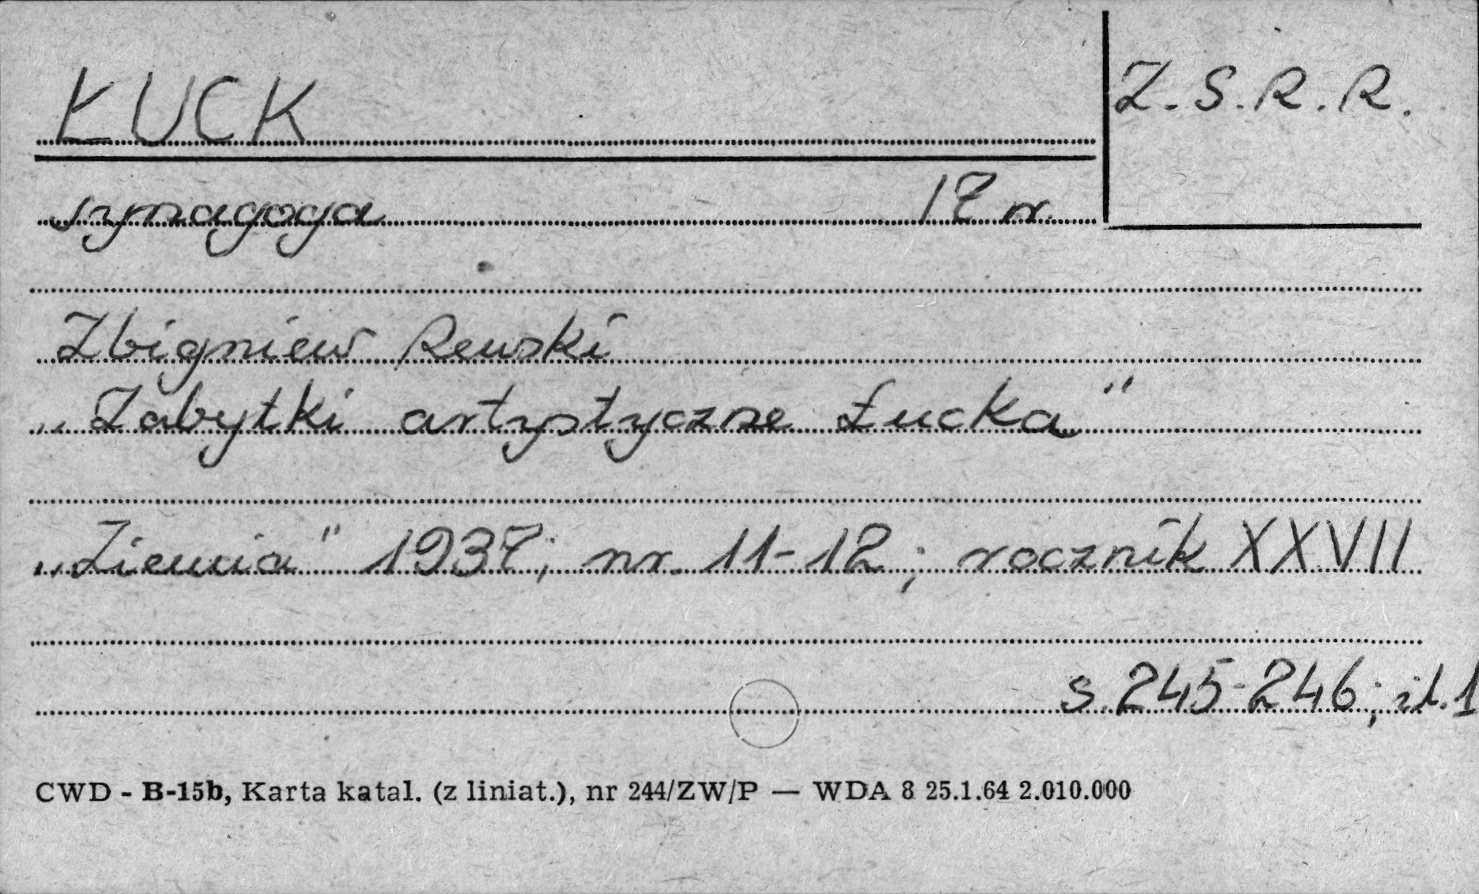 ŁUCK
Z.S.R.R.
synagoga 17 w.
Zbigniew Rewski
„Zabytki artystyczne Łucka"
„Ziemia" 1937; nr. 11-12; rocznik XXVII
s. 245-246; il. 1
CWD - B-15b, Karta katal. (z liniat.), nr 244/ZW/P — WDA 8 25.1.64 2.010.000